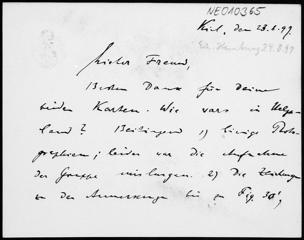 NE010365
Kiel, den 23.8.99.
Lieber Freund,
Besten Dank für Deine
beiden Karten. Wie wars in Helgo-
land? Beiliegend 1) einige Photo-
graphieen; leider war die Aufnahme
der Gruppe mislungen. 2) Die Zeichnungen
zu den Anmerkungen bis zu Fig. 30,